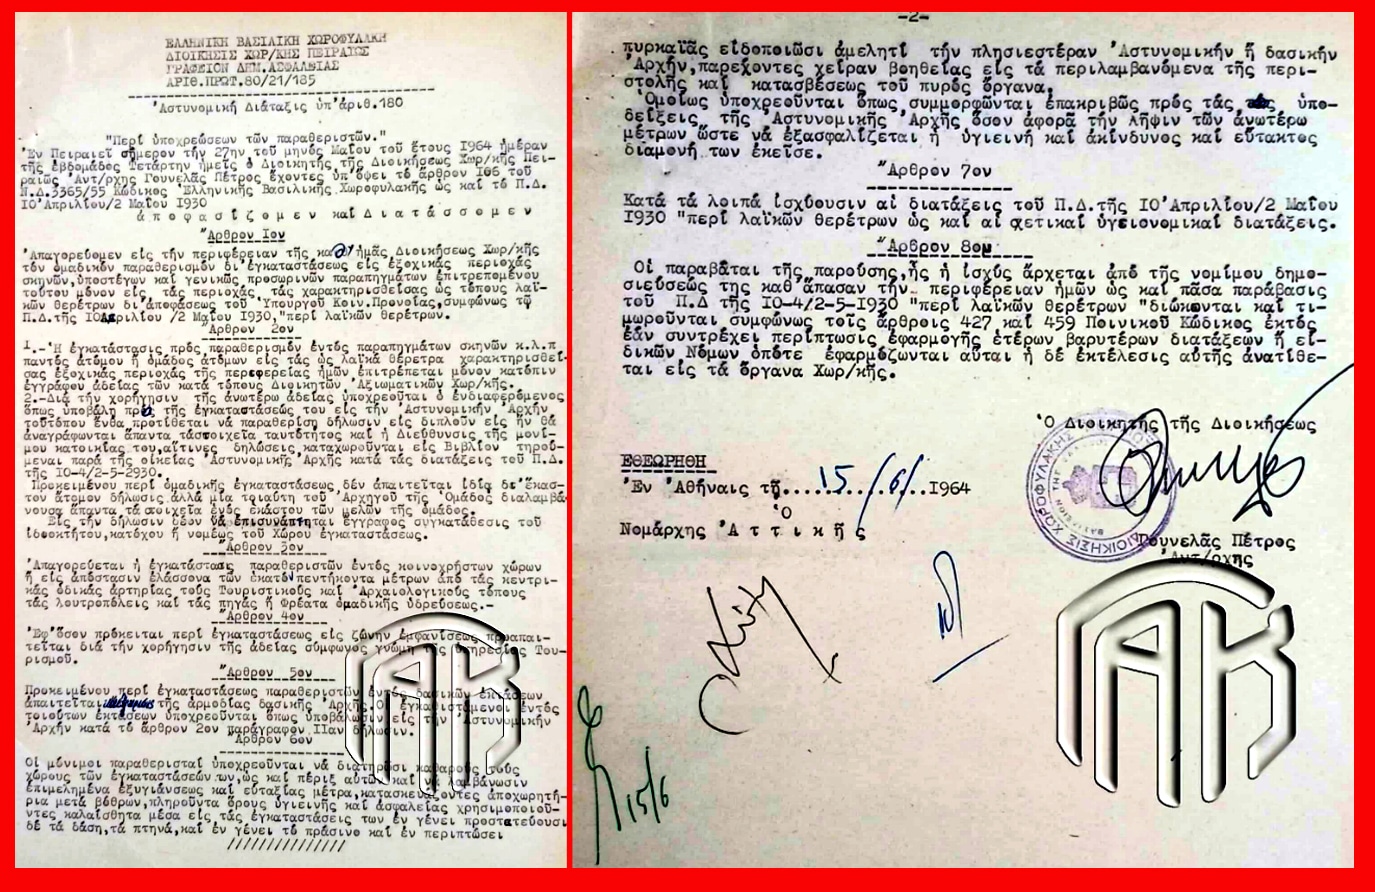 ΕΛΛΗΝΙΚΗ ΒΑΣΙΛΙΚΗ ΧΩΡΟΦΥΛΑΚΗ
ΔΙΟΙΚΗΣΙΣ ΧΩΡ/ΚΗΣ ΠΕΙΡΑΙΩΣ
ΓΡΑΦΕΙΟΝ ΔΗΜ.ΑΣΦΑΛΕΙΑΣ
ΑΡΙΘ.ΠΡΩΤ.80/21/185
Ἀστυνομική Διάταξις ὑπ'ἀριθ.180
"Περί ὑποχρεώσεων τῶν παραθεριστῶν."
Ἐν Πειραιεῖ σήμερον τήν 27ην τοῦ μηνός Μαΐου τοῦ ἔτους 1964 ἡμέραν
τῆς ἑβδομάδος Τετάρτην ἡμεῖς ὁ Διοικητής τῆς Διοικήσεως Χωρ/κῆς Πει-
ραιῶς Ἀντ/ρχης Γουνελᾶς Πέτρος ἔχοντες ὑπ'ὄψει τό ἄρθρον Ι06 τοῦ
Ν.Δ.3365/55 Κώδικος Ἑλληνικῆς Βασιλικῆς Χωροφυλακῆς ὡς καί τό Π.Δ.
ΙΟ Ἀπριλίου/2 Μαΐου 1930
ἀ π ο φ α σ ί ζ ο μ ε ν καί Δ ι α τ ά σ σ ο μ ε ν
Ἄρθρον Ιον
Ἀπαγορεύομεν εἰς τήν περιφέρειαν τῆς καθ' ἡμᾶς Διοικήσεως Χωρ/κῆς
τόν ὁμαδικόν παραθερισμόν δι'ἐγκαταστάσεως εἰς ἐξοχικάς περιοχάς
σκηνῶν,ὑποστέγων καί γενικῶς προσωρινῶν παραπηγμάτων ἐπιτρεπομένου
τούτου μόνον εἰς τάς περιοχάς τάς χαρακτηρισθείσας ὡς τόπους λαϊ-
κῶν θερέτρων δι'ἀποφάσεως τοῦ Ὑπουργοῦ Κοιν.Προνοίας,συμφώνως τῷ
Π.Δ.τῆς ΙΟ Ἀπριλίου /2 Μαΐου 1930,"περί λαϊκῶν θερέτρων.
Ἄρθρον 2ον
1.-Ἡ ἐγκατάστασις πρός παραθερισμόν ἐντός παραπηγμάτων σκηνῶν κ.λ.π
παντός ἀτόμου ἤ ὁμάδος ἀτόμων εἰς τάς ὡς λαϊκά θέρετρα χαρακτηρισθεί-
σας ἐξοχικάς περιοχάς τῆς περεφερείας ἡμῶν ἐπιτρέπεται μόνον κατόπιν
ἐγγράφου ἀδείας τῶν κατά τόπους Διοικητῶν Ἀξιωματικῶν Χωρ/κῆς.
2.-Διά τήν χορήγησιν τῆς ἀνωτέρω ἀδείας ὑποχρεοῦται ὁ ἐνδιαφερόμενος
ὅπως ὑποβάλῃ πρό τῆς ἐγκαταστάσεώς του εἰς τήν Ἀστυνομικήν Ἀρχήν
τοῦτόπου ἔνθα προτίθεται νά παραθερίσῃ δήλωσιν εἰς διπλοῦν εἰς ἥν θά
ἀναγράφωνται ἅπαντα τάστοιχεῖα ταυτότητος καί ἡ Διεύθυνσις τῆς μονί-
μου κατοικίας του,αἵτινες δηλώσεις καταχωροῦνται εἰς Βιβλίον τηρού-
μεναι παρά τῆς οἰκείας Ἀστυνομικῆς Ἀρχῆς κατά τάς διατάξεις τοῦ Π.Δ.
τῆς ΙΟ-4/2-5-2930.
Προκειμένου περί ὁμαδικῆς ἐγκαταστάσεως δέν ἀπαιτεῖται ἰδίᾳ δι'ἕκασ-
τον ἄτομον δήλωσις ἀλλά μία τοιαύτη τοῦ Ἀρχηγοῦ τῆς Ὁμάδος διαλαμβά-
νουσα ἅπαντα τά στοιχεῖα ἑνός ἑκάστου τῶν μελῶν τῆς ὁμάδος.
Εἰς τήν δήλωσιν δέον νά ἐπισυνάπτηται ἔγγραφος συγκατάθεσις τοῦ
ἰδιοκτήτου,κατόχου ἤ νομέως τοῦ Χώρου ἐγκαταστάσεως.
Ἄρθρον 3ον
Ἀπαγορεύεται ἡ ἐγκατάστασις παραθεριστῶν ἐντός κοινοχρήστων χώρων
ἤ εἰς ἀπόστασιν ἐλάσσονα τῶν ἑκατόν πεντήκοντα μέτρων ἀπό τάς κεντρι-
κάς ὁδικάς ἀρτηρίας τούς Τουριστικούς καί Ἀρχαιολογικούς τόπους
τάς λουτροπόλεις καί τάς πηγάς ἤ Φρέατα ὁμαδικῆς ὑδρεύσεως.-
Ἄρθρον 4ον
Ἐφ'ὅσον πρόκειται περί ἐγκαταστάσεως εἰς ζώνην ἐμφανίσεως προαπαι-
τεῖται διά τήν χορήγησιν τῆς ἀδείας σύμφωνος γνώμη τῆς Ὑπηρεσίας Του-
ρισμοῦ.
Ἄρθρον 5ον
Προκειμένου περί ἐγκαταστάσεως παραθεριστῶν ἐντός δασικῶν ἐκτάσεων
ἀπαιτεῖται τῆς ἁρμοδίας δασικῆς Ἀρχῆς.Οἱ ἐγκαθιστάμενοι ἐντός
τοιούτων ἐκτάσεων ὑποχρεοῦνται ὅπως ὑποβάλωσιν εἰς τήν Ἀστυνομικήν
Ἀρχήν κατά τό ἄρθρον 2ον παράγραφον ΙΙαν δήλωσιν.
Ἄρθρον 6ον
Οἱ μόνιμοι παραθερισταί ὑποχρεοῦνται νά διατηρῶσι καθαρούς τούς
χώρους τῶν ἐγκαταστάσεών των,ὡς καί πέριξ αὐτῶν καί νά λαμβάνωσιν
ἐπιμελημένα ἐξυγιάνσεως καί εὐταξίας μέτρα,κατασκευάζοντες ἀποχωρητή-
ρια μετά βόθρων,πληροῦντα ὅρους ὑγιεινῆς καί ἀσφαλείας χρησιμοποιοῦ-
ντες καλαίσθητα μέσα εἰς τάς ἐγκαταστάσεις των ἐν γένει προστατεύουσι
δέ τά δάση,τά πτηνά,καί ἐν γένει τό πράσινο καί ἐν περιπτώσει
////////////////
-2-
πυρκαϊᾶς εἰδοποιῶσι ἀμελητί τήν πλησιεστέραν Ἀστυνομικήν ἤ δασικήν
Ἀρχήν,παρέχοντες χεῖραν βοηθείας εἰς τά περιλαμβανόμενα τῆς περι-
στολῆς καί κατασβέσεως τοῦ πυρός ὄργανα.
Ὁμοίως ὑποχρεοῦνται ὅπως συμμορφῶνται ἐπακριβῶς πρός τάς ὑπο-
δείξεις τῆς Ἀστυνομικῆς Ἀρχῆς ὅσον ἀφορᾶ τήν λῆψιν τῶν ἀνωτέρω
μέτρων ὥστε νά ἐξασφαλίζεται ἡ ὑγιεινή καί ἀκίνδυνος καί εὔτακτος
διαμονή των ἐκεῖσε.
Ἄρθρον 7ον
Κατά τά λοιπά ἰσχύουσιν αἱ διατάξεις τοῦ Π.Δ.τῆς ΙΟ Ἀπριλίου/2 Μαΐου
1930 "περί λαϊκῶν θερέτρων ὡς καί αἱ σχετικαί ὑγειονομικαί διατάξεις.
Ἄρθρον 8ον
Οἱ παραβᾶται τῆς παρούσης,ἧς ἡ ἰσχύς ἄρχεται ἀπό τῆς νομίμου δημο-
σιεύσεώς της καθ'ἅπασαν τήν περιφέρειαν ἡμῶν ὡς καί πᾶσα παράβασις
τοῦ Π.Δ τῆς ΙΟ-4/2-5-1930 "περί λαϊκῶν θερέτρων "διώκωνται καί τι-
μωροῦνται συμφώνως τοῖς ἄρθροις 427 καί 459 Ποινικοῦ Κώδικος ἐκτός
ἐάν συντρέχει περίπτωσις ἐφαρμογῆς ἑτέρων βαρυτέρων διατάξεων ἤ εἰ-
δικῶν Νόμων ὁπότε ἐφαρμόζωνται αὗται ἡ δέ ἐκτέλεσις αὐτῆς ἀνατίθε-
ται εἰς τά ὄργανα Χωρ/κῆς.
Ὁ Διοικητής τῆς Διοικήσεως
ΕΘΕΩΡΗΘΗ
Ἐν Ἀθήναις τῇ....15../6/...1964
Ὁ
Νομάρχης Ἀ τ τ ι κ ῆ ς
Γουνελᾶς Πέτρος
Ἀντ/ρχης
15/6
ΑΚ